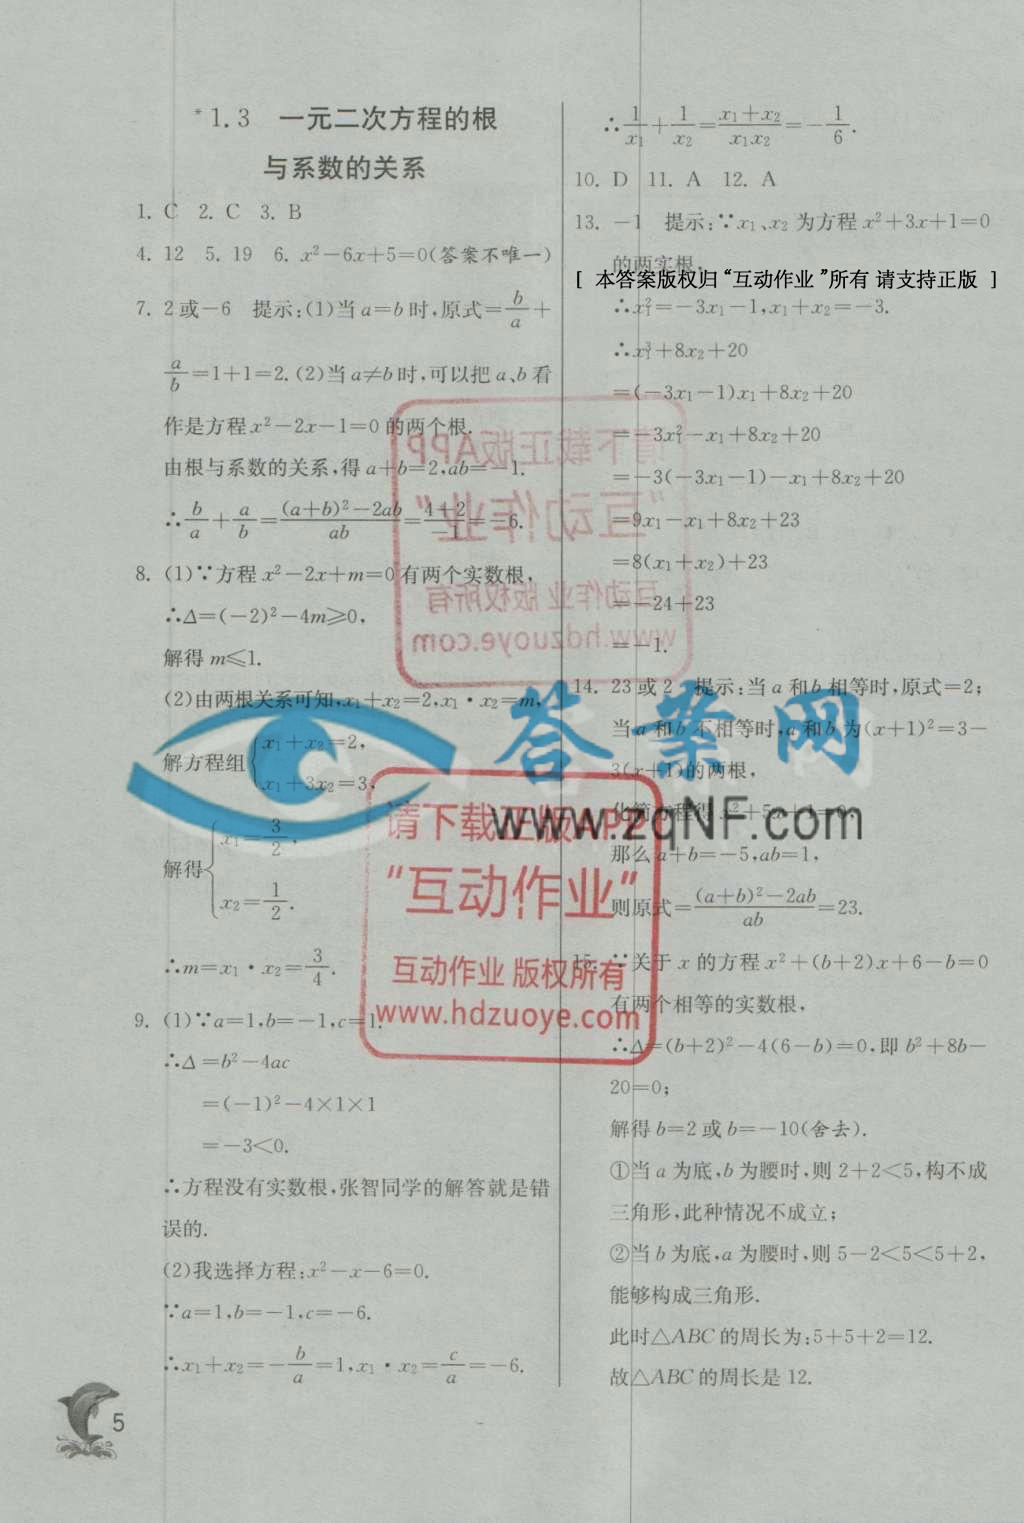 *1.3 一元二次方程的根
与系数的关系
1. C 2. C 3. B
4. 12 5. 19 6. x²-6x+5=0(答案不唯一)
7. 2或-6 提示:(1)当a=b时,原式=b/a+
a/b=1+1=2.(2)当a≠b时,可以把a、b看
作是方程x²-2x-1=0的两个根.
由根与系数的关系,得a+b=2,ab=-1.
∴b/a+a/b=((a+b)²-2ab)/ab=(4+2)/-1=-6.
8. (1)∵方程x²-2x+m=0有两个实数根,
∴Δ=(-2)²-4m≥0,
解得m≤1.
(2)由两根关系可知,x₁+x₂=2,x₁·x₂=m,
解方程组{x₁+x₂=2,
x₁+3x₂=3,
解得{x₁=3/2,
x₂=1/2.
∴m=x₁·x₂=3/4.
9. (1)∵a=1,b=-1,c=1.
∴Δ=b²-4ac
=(-1)²-4×1×1
=-3<0.
∴方程没有实数根,张智同学的解答就是错
误的.
(2)我选择方程:x²-x-6=0.
∵a=1,b=-1,c=-6.
∴x₁+x₂=-b/a=1,x₁·x₂=c/a=-6.
5
∴1/x₁+1/x₂=(x₁+x₂)/x₁x₂=-1/6.
10. D 11. A 12. A
13. -1 提示:∵x₁、x₂为方程x²+3x+1=0
的两实根,
[ 本答案版权归“互动作业”所有 请支持正版 ]
∴x₁²=-3x₁-1,x₁+x₂=-3.
∴x₁³+8x₂+20
=(-3x₁-1)x₁+8x₂+20
=-3x₁²-x₁+8x₂+20
=-3(-3x₁-1)-x₁+8x₂+20
=9x₁-x₁+8x₂+23
=8(x₁+x₂)+23
=-24+23
=-1.
14. 23或2 提示:当a和b相等时,原式=2;
当a和b不相等时,a和b为(x+1)²=3-
3(x+1)的两根,
化简方程得x²+5x+1=0,
那么a+b=-5,ab=1,
则原式=((a+b)²-2ab)/ab=23.
15. ∵关于x的方程x²+(b+2)x+6-b=0
有两个相等的实数根,
∴Δ=(b+2)²-4(6-b)=0,即b²+8b-
20=0;
解得b=2或b=-10(舍去).
①当a为底,b为腰时,则2+2<5,构不成
三角形,此种情况不成立;
②当b为底,a为腰时,则5-2<5<5+2,
能够构成三角形.
此时△ABC的周长为:5+5+2=12.
故△ABC的周长是12.
请下载正版APP
“互动作业”
互动作业 版权所有
www.hdzuoye.com
答案网
www.zqNF.com
请下载正版APP
“互动作业”
互动作业 版权所有
www.hdzuoye.com